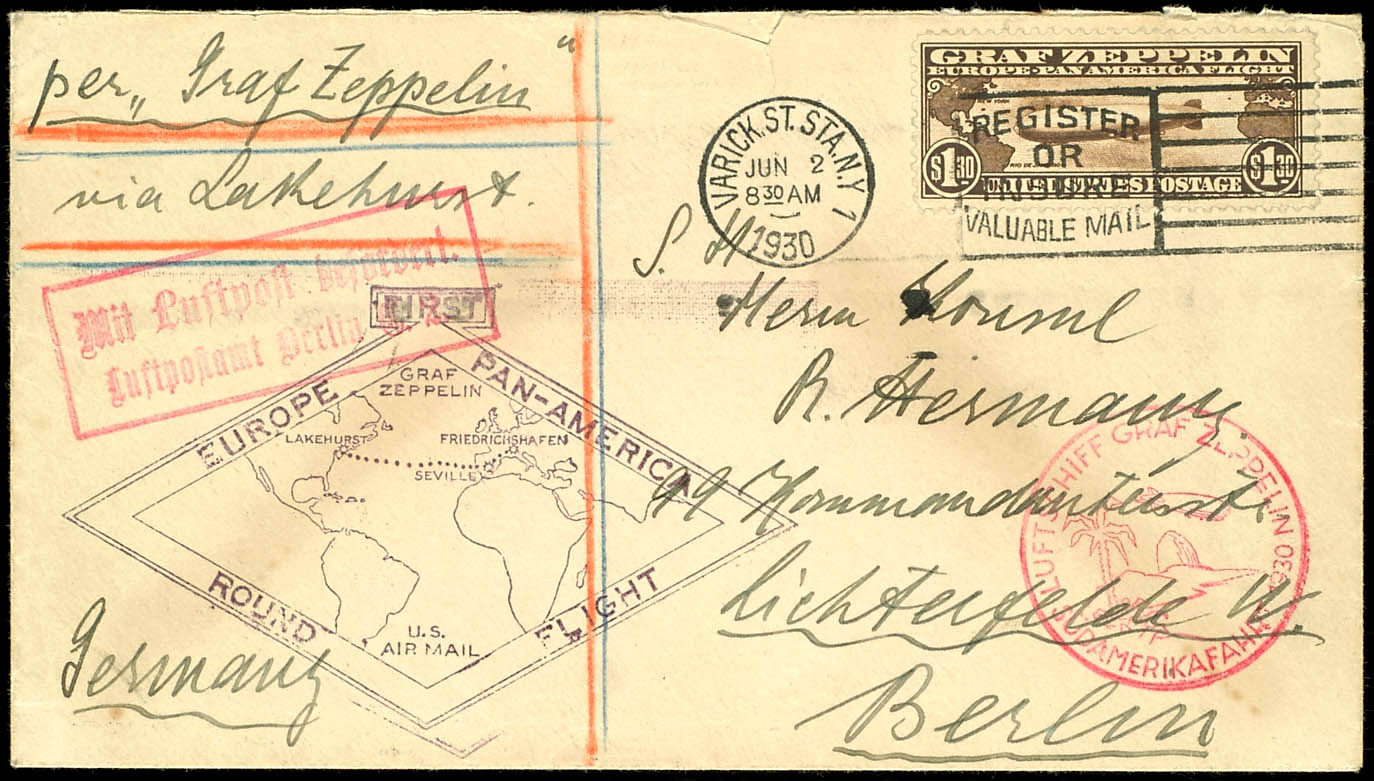 per „Graf Zeppelin“
via Lakehurst.
Mit Luftpost befördert.
Luftpostamt Berlin
FIRST
EUROPE PAN-AMERICA
ROUND FLIGHT
GRAF
ZEPPELIN
LAKEHURST
FRIEDRICHSHAFEN
SEVILLE
U.S.
AIR MAIL
Germany
VARICK.ST.STA.N.Y
JUN 2
8 30 AM
1930
1
GRAF ZEPPELIN
EUROPE-PAN AMERICA FLIGHT
NEW YORK
RIO DE
$1.30 UNITED STATES POSTAGE $1.30
REGISTER
OR
INSURE
VALUABLE MAIL
S. H.
Herrn Konsul
R. Hermann
99
Lichterfelde W.
Berlin
LUFTSCHIFF GRAF ZEPPELIN
SÜDAMERIKAFAHRT 1930